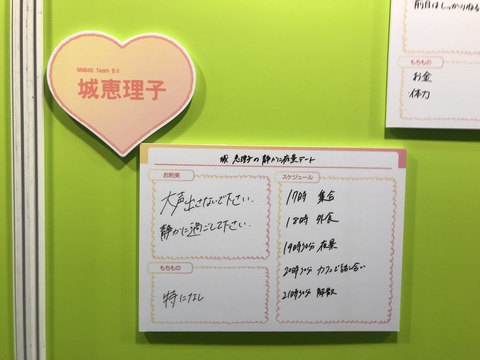 NMB48 Team BⅡ
城恵理子
前日はしっかりねる
もちもの
お金
体力
城 恵理子の静かに夜景デート
お約束
大声出さないで下さい.
静かに過ごして下さい.
もちもの
特になし
スケジュール
17時 集合
18時 外食
19時30分 夜景
20時30分 カフェで話し合い
21時30分 解散